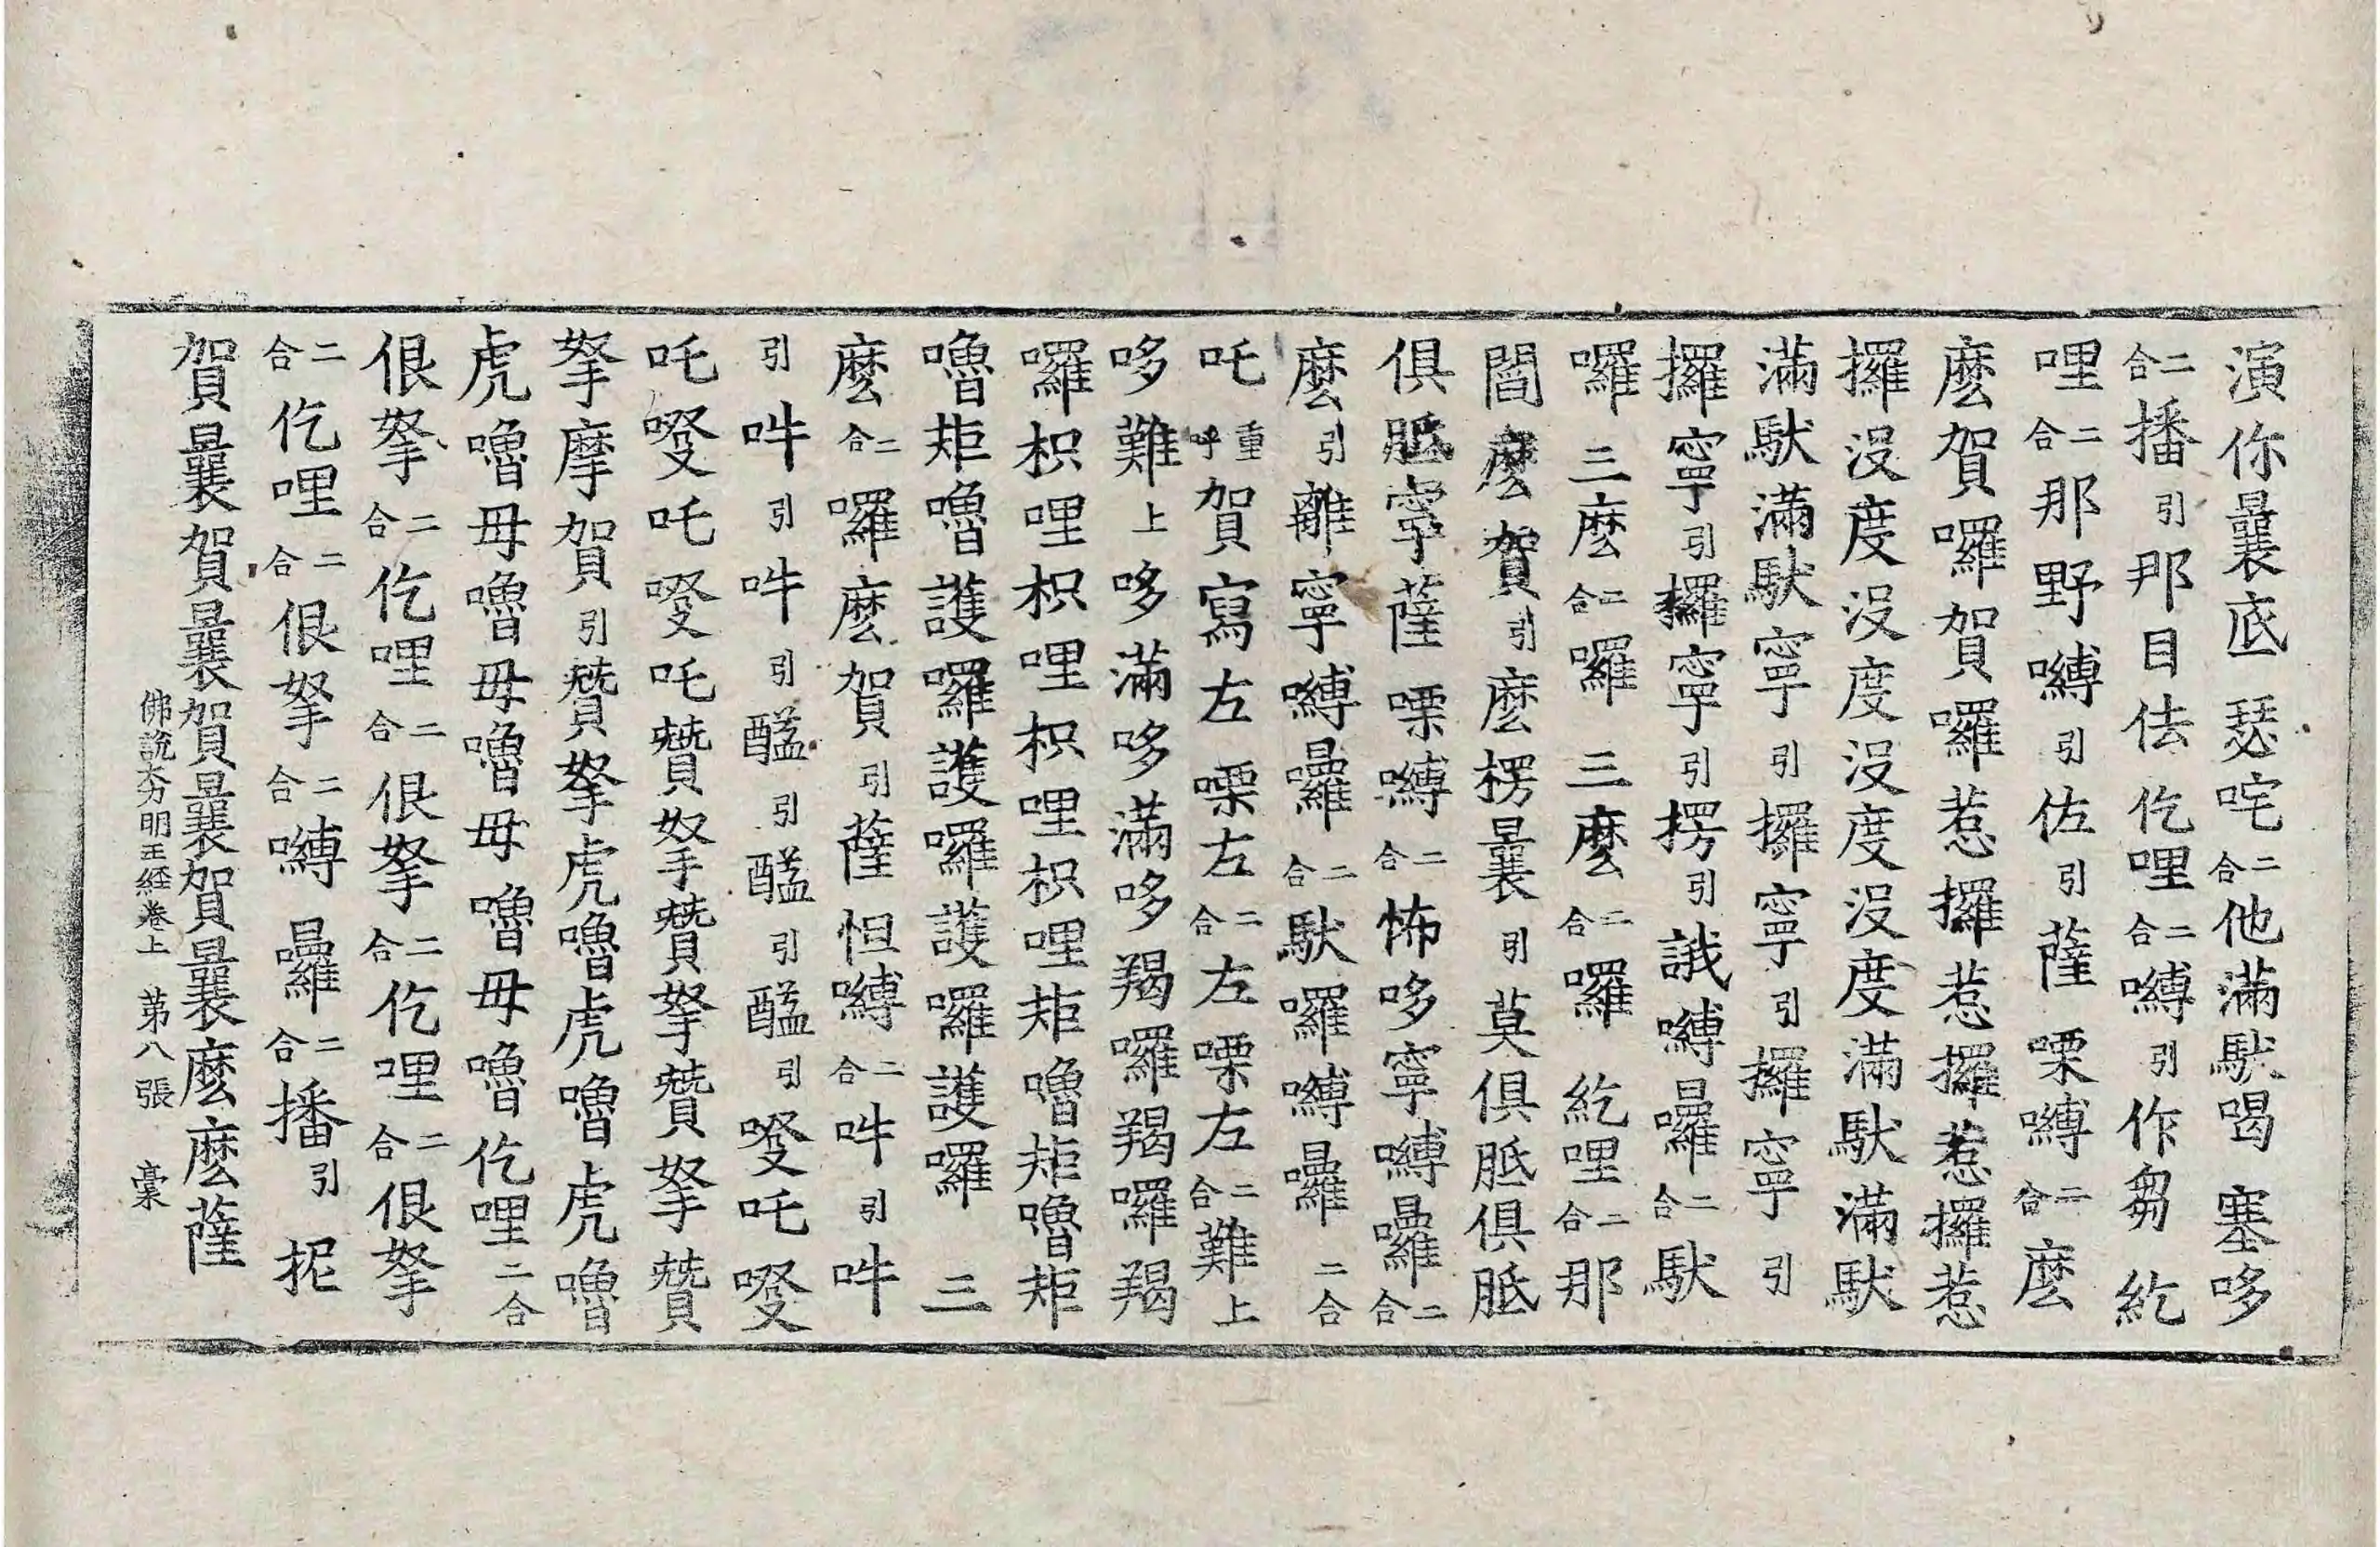 演你曩底瑟咤二合他滿馱喝塞哆
二合播引那目佉仡哩二合嚩引作芻紇
哩二合那野嚩引佐引薩㗚嚩二合麽
麽賀囉賀囉惹攞惹攞惹攞惹
攞沒度沒度沒度沒度滿馱滿馱
滿馱滿馱寧引攞寧引攞寧引
攞寧引攞寧引楞引誐嚩曩二合馱
囉三麽二合囉三麽二合囉紇哩二合那
閻麽賀引麽楞曩引莫俱胝俱胝
俱胝寧薩㗚嚩二合怖哆寧嚩囉二合
麽引離寧嚩囉二合馱囉嚩囉二合
吒重呼賀寫左㗚左二合左㗚左二合難上
哆難上哆滿哆滿哆羯囉羯囉羯
囉枳哩枳哩枳哩枳哩矩嚕矩嚕矩
嚕矩嚕護囉護囉護囉護囉三
麽二合囉麽賀引薩怛嚩二合吽引吽
引吽引吽引醯引醯引醯引㗛吒㗛
吒㗛吒㗛吒贊拏贊拏贊拏贊
拏摩賀引贊拏虎嚕虎嚕虎嚕
虎嚕母嚕母嚕母嚕母嚕仡哩二合
佷拏二合仡哩二合佷拏二合仡哩二合佷拏
二合仡哩二合佷拏二合嚩囉二合播引抳
賀曩賀曩賀曩賀曩麽麽薩
佛說大力明王經卷上 第八張 槀